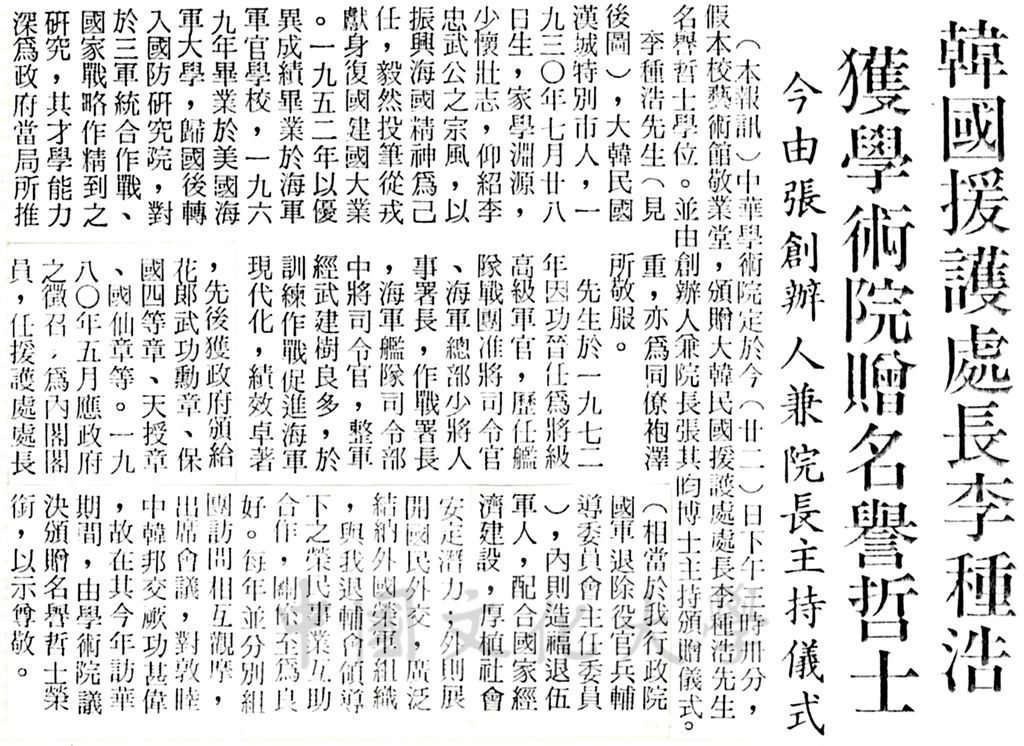 韓國援護處長李種浩
獲學術院贈名譽哲士
今由張創辦人兼院長主持儀式
（本報訊）中華學術院定於今（廿二）日下午三時卅分，
假本校藝術館敬業堂，頒贈大韓民國援護處處長李種浩先生
名譽哲士學位。並由創辦人兼院長張其昀博士主持頒贈儀式。
李種浩先生（見
後圖），大韓民國
漢城特別市人，一
九三〇年七月廿八
日生，家學淵源，
少懷壯志，仰紹李
忠武公之宗風，以
振興海國精神為己
任，毅然投筆從戎
獻身復國建國大業
。一九五二年以優
異成績畢業於海軍
軍官學校，一九六
九年畢業於美國海
軍大學，歸國後轉
入國防研究院，對
於三軍統合作戰、
國家戰略作精到之
研究，其才學能力
深為政府當局所推
重，亦為同僚袍澤
所敬服。
先生於一九七二
年因功晉任為將級
高級軍官，歷任艦
隊戰團准將司令官
、海軍總部少將人
事署長，作戰署長
，海軍艦隊司令部
中將司令官，整軍
經武建樹良多，於
訓練作戰促進海軍
現代化，績效卓著
，先後獲政府頒給
花郎武功勳章、保
國四等章、天授章
、國仙章等。一九
八〇年五月應政府
之徵召，為內閣閣
員，任援護處處長
（相當於我行政院
國軍退除役官兵輔
導委員會主任委員
），內則造福退伍
軍人，配合國家經
濟建設，厚植社會
安定潛力；外則展
開國民外交，廣泛
結納外國榮軍組織
，與我退輔會領導
下之榮民事業互助
合作，關係至為良
好。每年並分別組
團訪問相互觀摩，
出席會議，對敦睦
中韓邦交厥功甚偉
，故在其今年訪華
期間，由學術院議
決頒贈名譽哲士榮
銜，以示尊敬。
中國文化大學